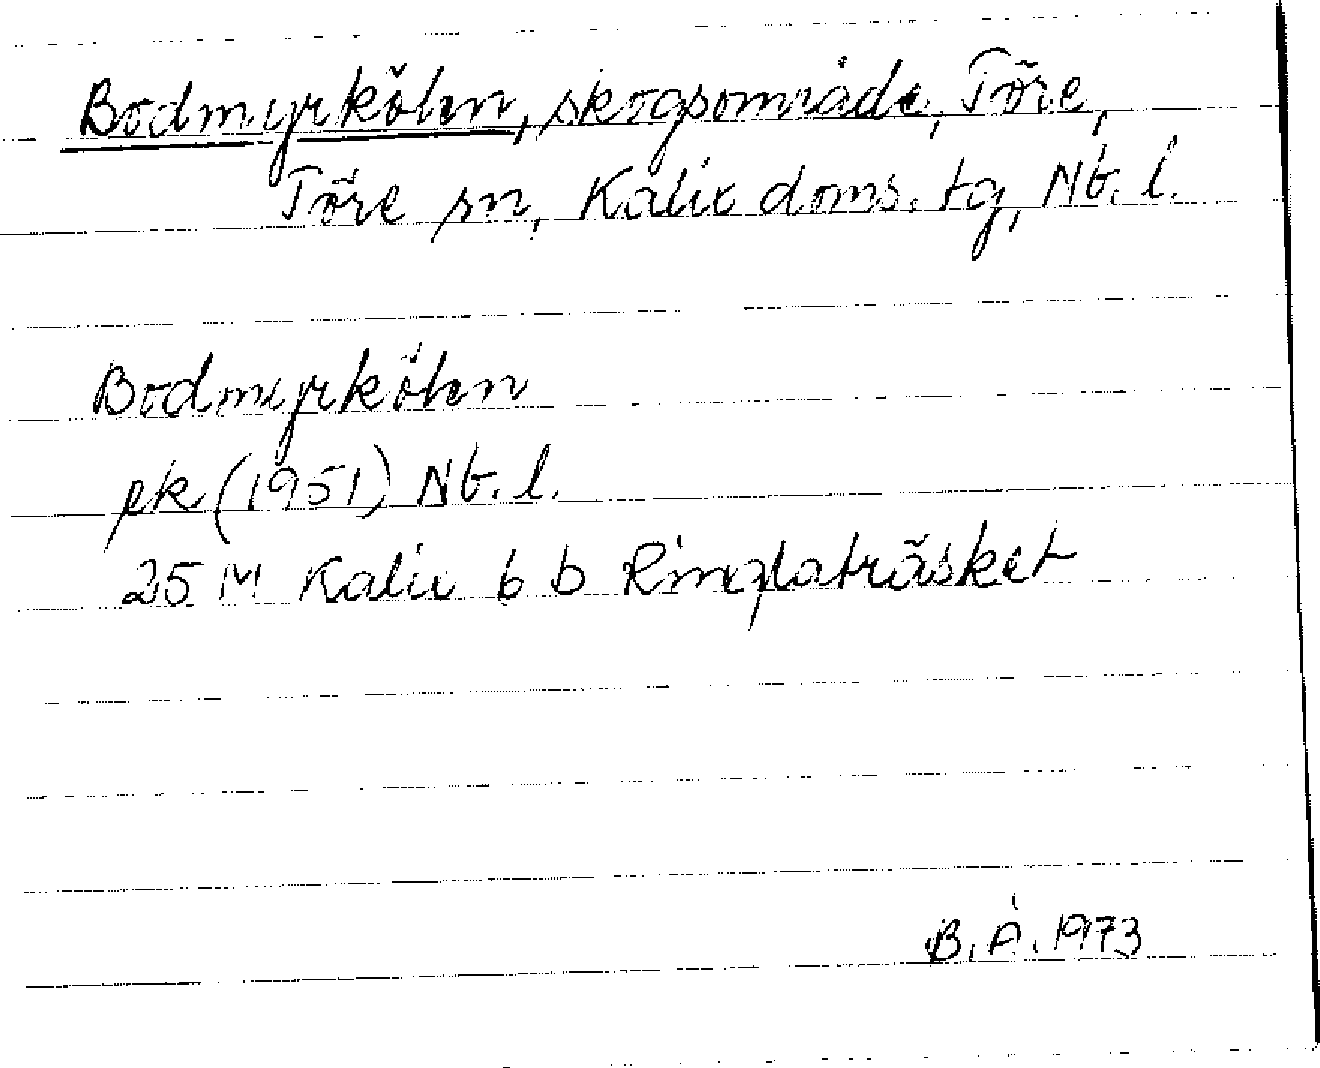 Bodmyrkölen, skogsområde, Töre,
Töre sn, Kalix doms. tg, Nb. l.
Bodmyrkölen
ek (1951) Nb. l.
25 M Kalix 6 b Ringlaträsket
B. Å. 1973